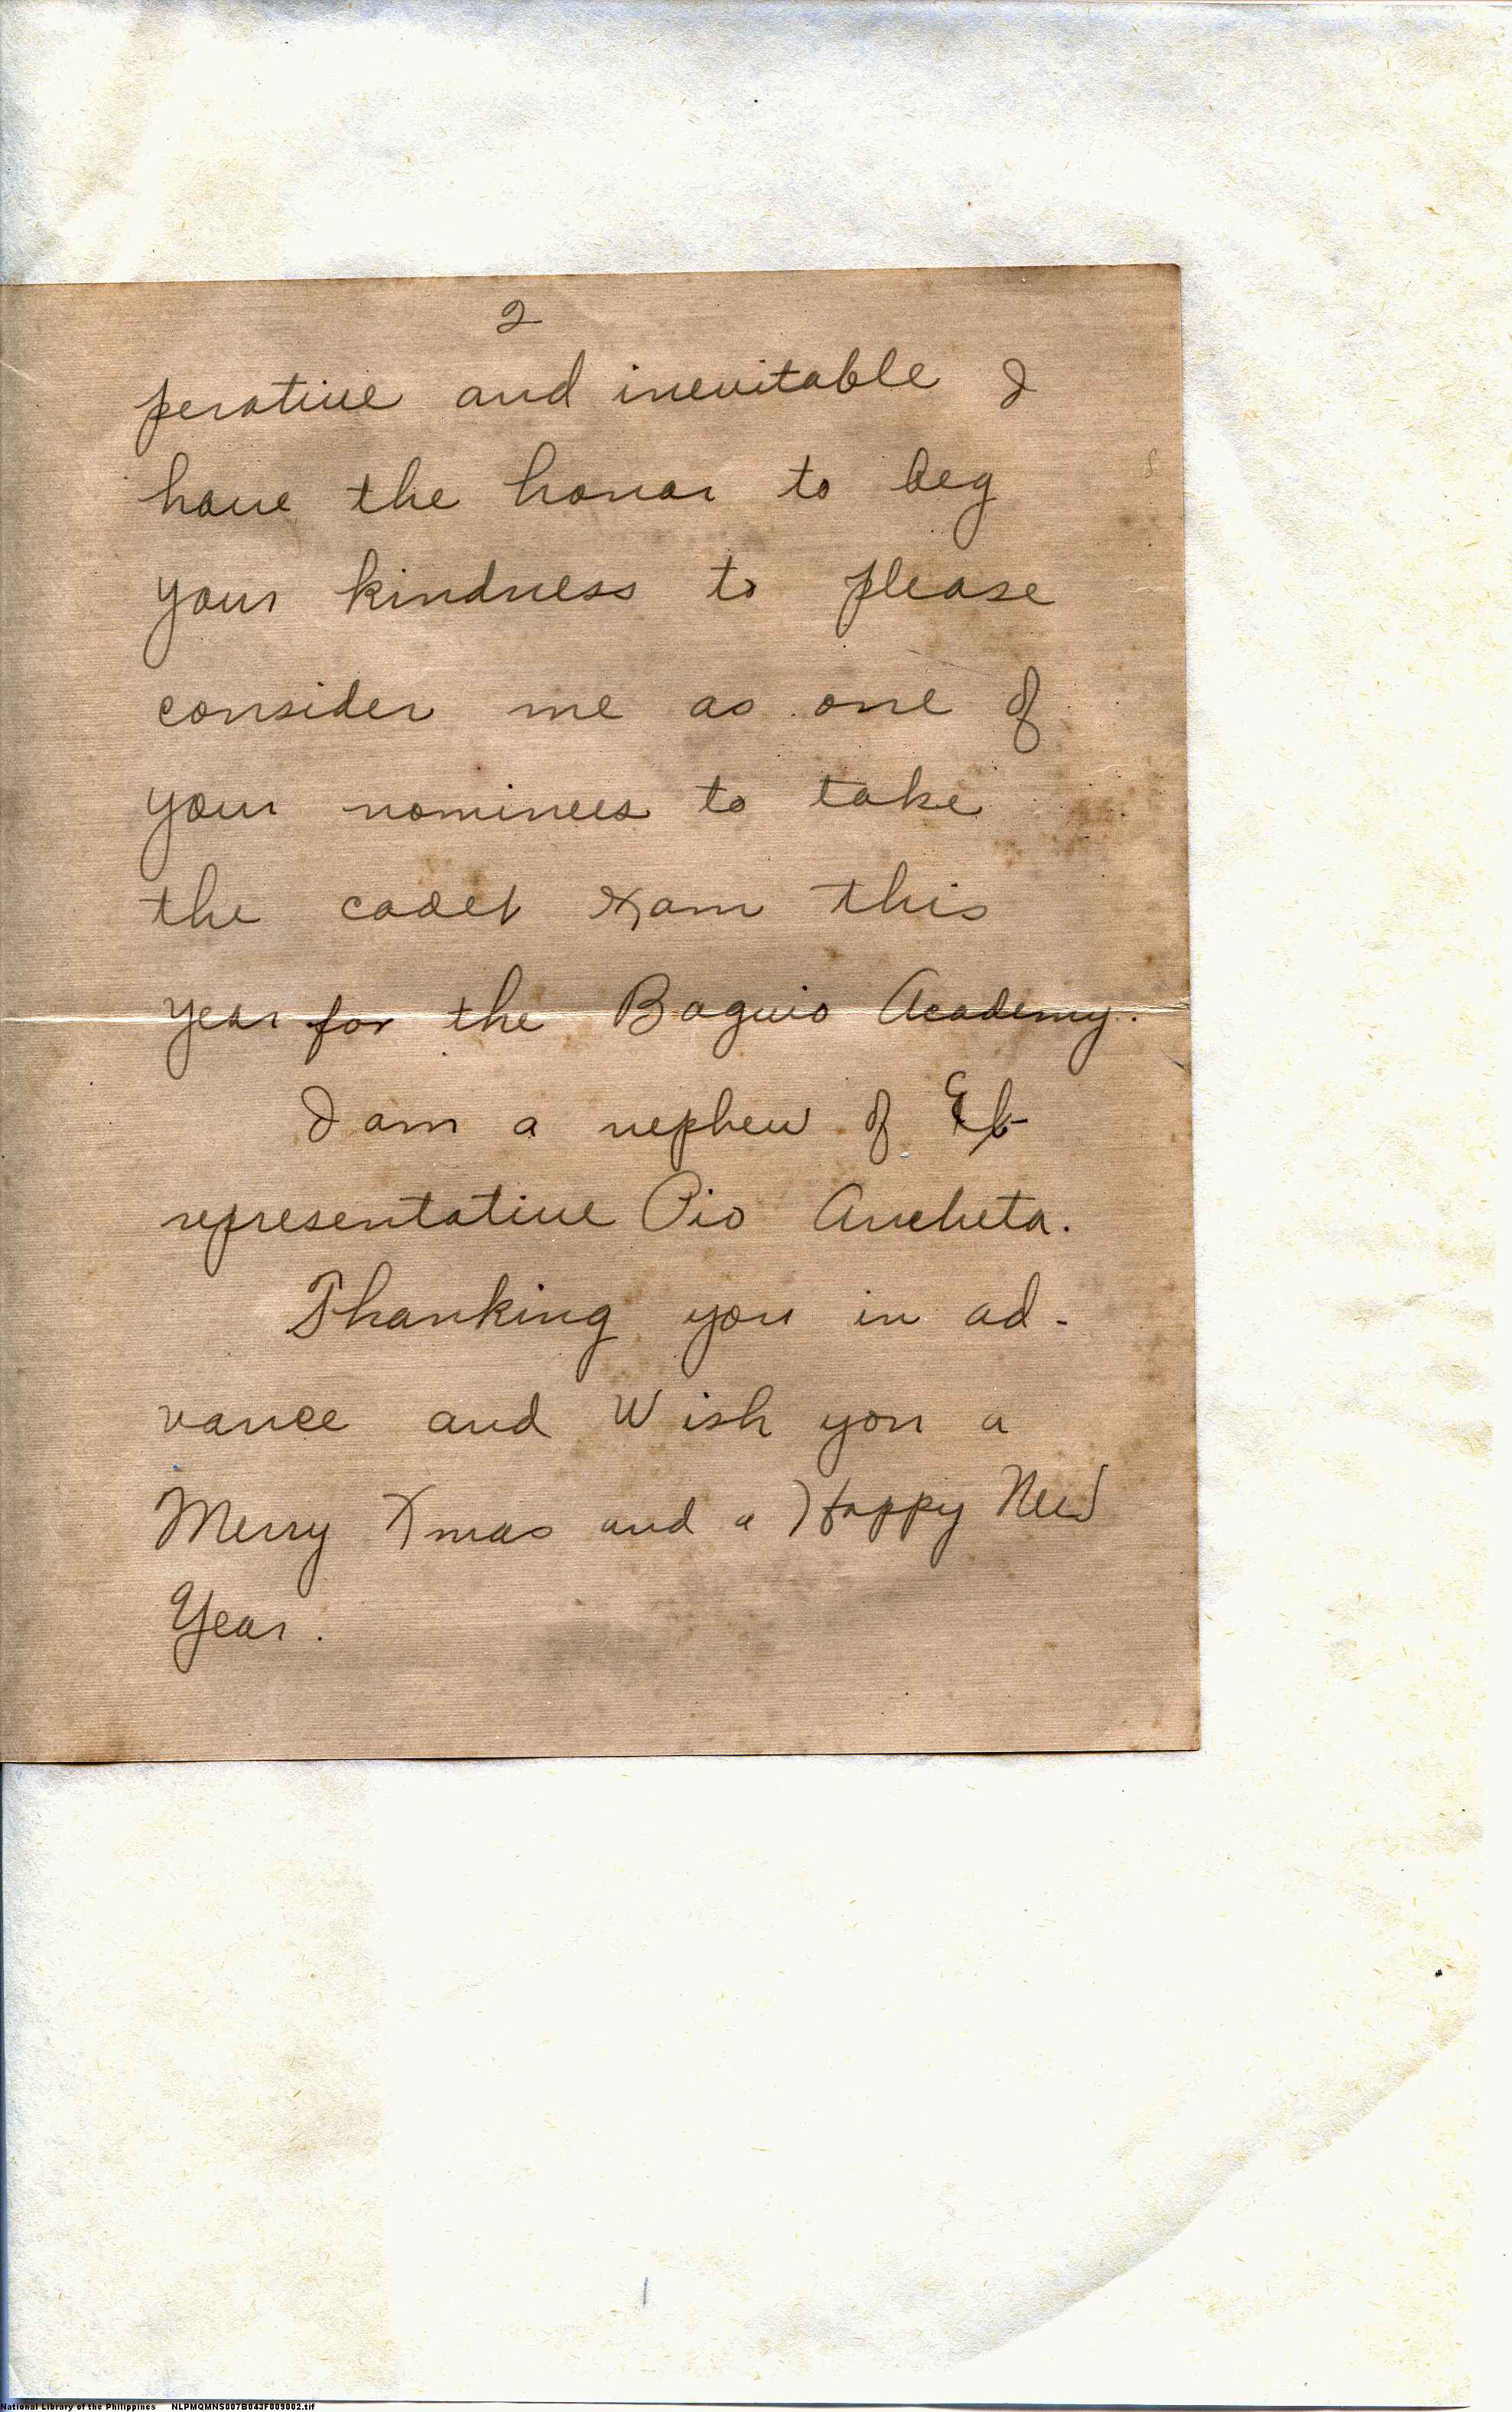 2
perative and inevitable I
have the honor to beg
your kindness to please
consider me as one of
your nominees to take
the cadet exam this
year for the Baguio Academy.
I am a nephew of Ex-
representative Pio Ancheta.
Thanking you in ad-
vance and Wish you a
Merry Xmas and a Happy New
Year.
National Library of the Philippines NLPMQMNS007B043F009002.tif